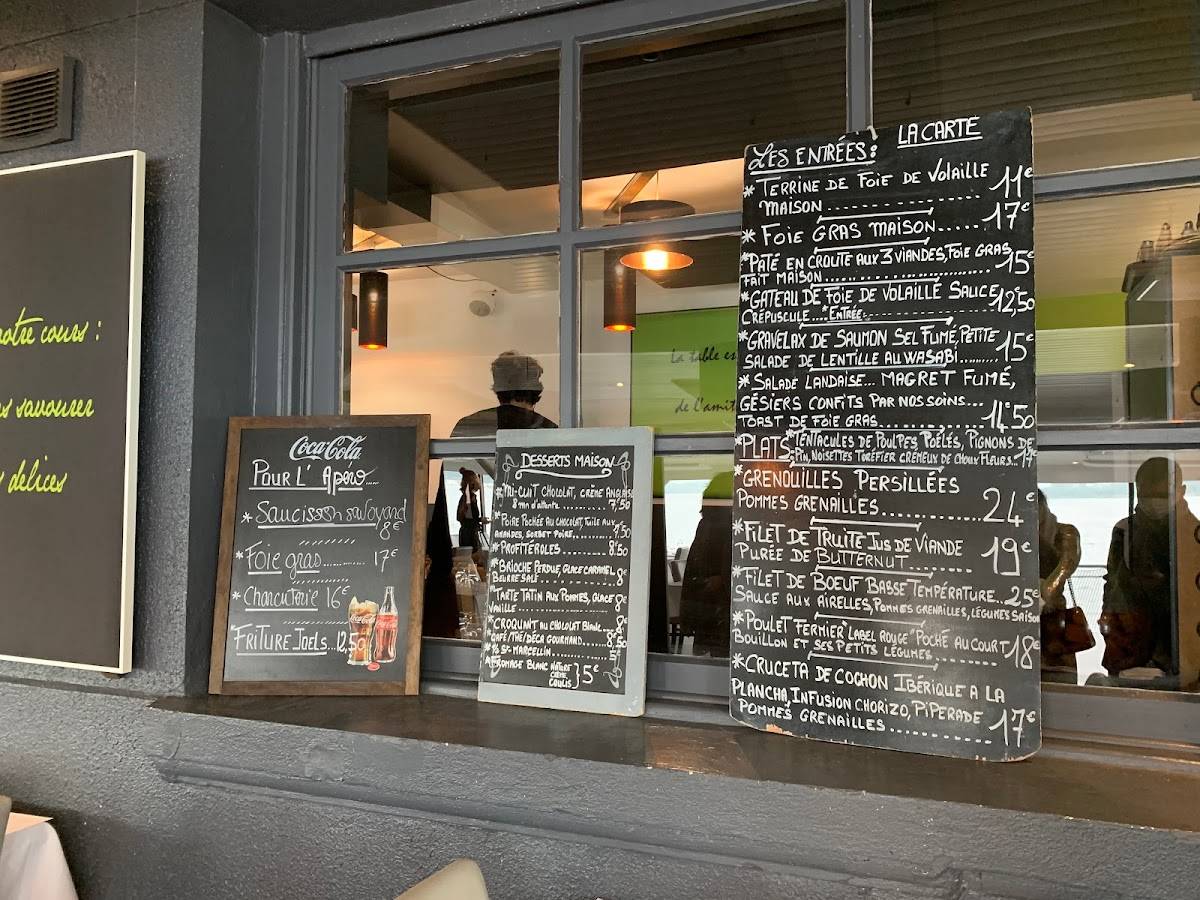 notre cours :
savourer
délices
La table es
de l'amit
Coca-Cola
Pour L' Apéro.....
* Saucisson savoyard
8€
* Foie gras............ 17€
* Charcuterie 16€
* Friture Joels... 12,50
DESSERTS MAISON
* MI-CUIT CHOCOLAT, CRÈME ANGLAISE
8 mn d'attente ........ 7,50
* POIRE POCHÉE AU CHOCOLAT, TUILE AUX
AMANDES, SORBET POIRE........ 7,50
* PROFITÉROLES........... 8,50
* BRIOCHE PERDUE, GLACE CARAMEL
BEURRE SALÉ ........ 8€
* TARTE TATIN AUX POMMES, GLACE
VANILLE ........ 8€
* CROQUANT AU CHOCOLAT BLANC 8€
* CAFÉ/THÉ/DÉCA GOURMAND..... 8,50
* ½ ST-MARCELLIN...........
* FROMAGE BLANC NATURE
CRÈME
COULIS } 5€
LA CARTE
LES ENTRÉES:
* TERRINE DE FOIE DE VOLAILLE
MAISON ............ 11€
* FOIE GRAS MAISON...... 17€
* PATÉ EN CROUTE AUX 3 VIANDES, FOIE GRAS
FAIT MAISON ............ 15€
* GATEAU DE FOIE DE VOLAILLE SAUCE
CRÉPUSCULE....*ENTRÉE........ 12,50
* GRAVELAX DE SAUMON SEL FUMÉ, PETITE
SALADE DE LENTILLE AU WASABI......... 15€
* SALADE LANDAISE... MAGRET FUMÉ,
GÉSIERS CONFITS PAR NOS SOINS...
TOAST DE FOIE GRAS......... 14,50
PLATS: * TENTACULES DE POULPES POÊLÉS, PIGNONS DE
PIN, NOISETTES TORÉFIER CRÉMEUX DE CHOUX FLEURS... 17€
* GRENOUILLES PERSILLÉES
POMMES GRENAILLES............ 24€
* FILET DE TRUITE JUS DE VIANDE
PURÉE DE BUTTERNUT........ 19€
* FILET DE BOEUF BASSE TEMPÉRATURE... 25€
SAUCE AUX AIRELLES, POMMES GRENAILLES, LÉGUMES SAISON
* POULET FERMIER "LABEL ROUGE" POCHÉ AU COURT
BOUILLON ET SES PETITS LÉGUMES........ 18€
* CRUCETA DE COCHON IBÉRIQUE A LA
PLANCHA, INFUSION CHORIZO, PIPERADE
POMMES GRENAILLES............ 17€